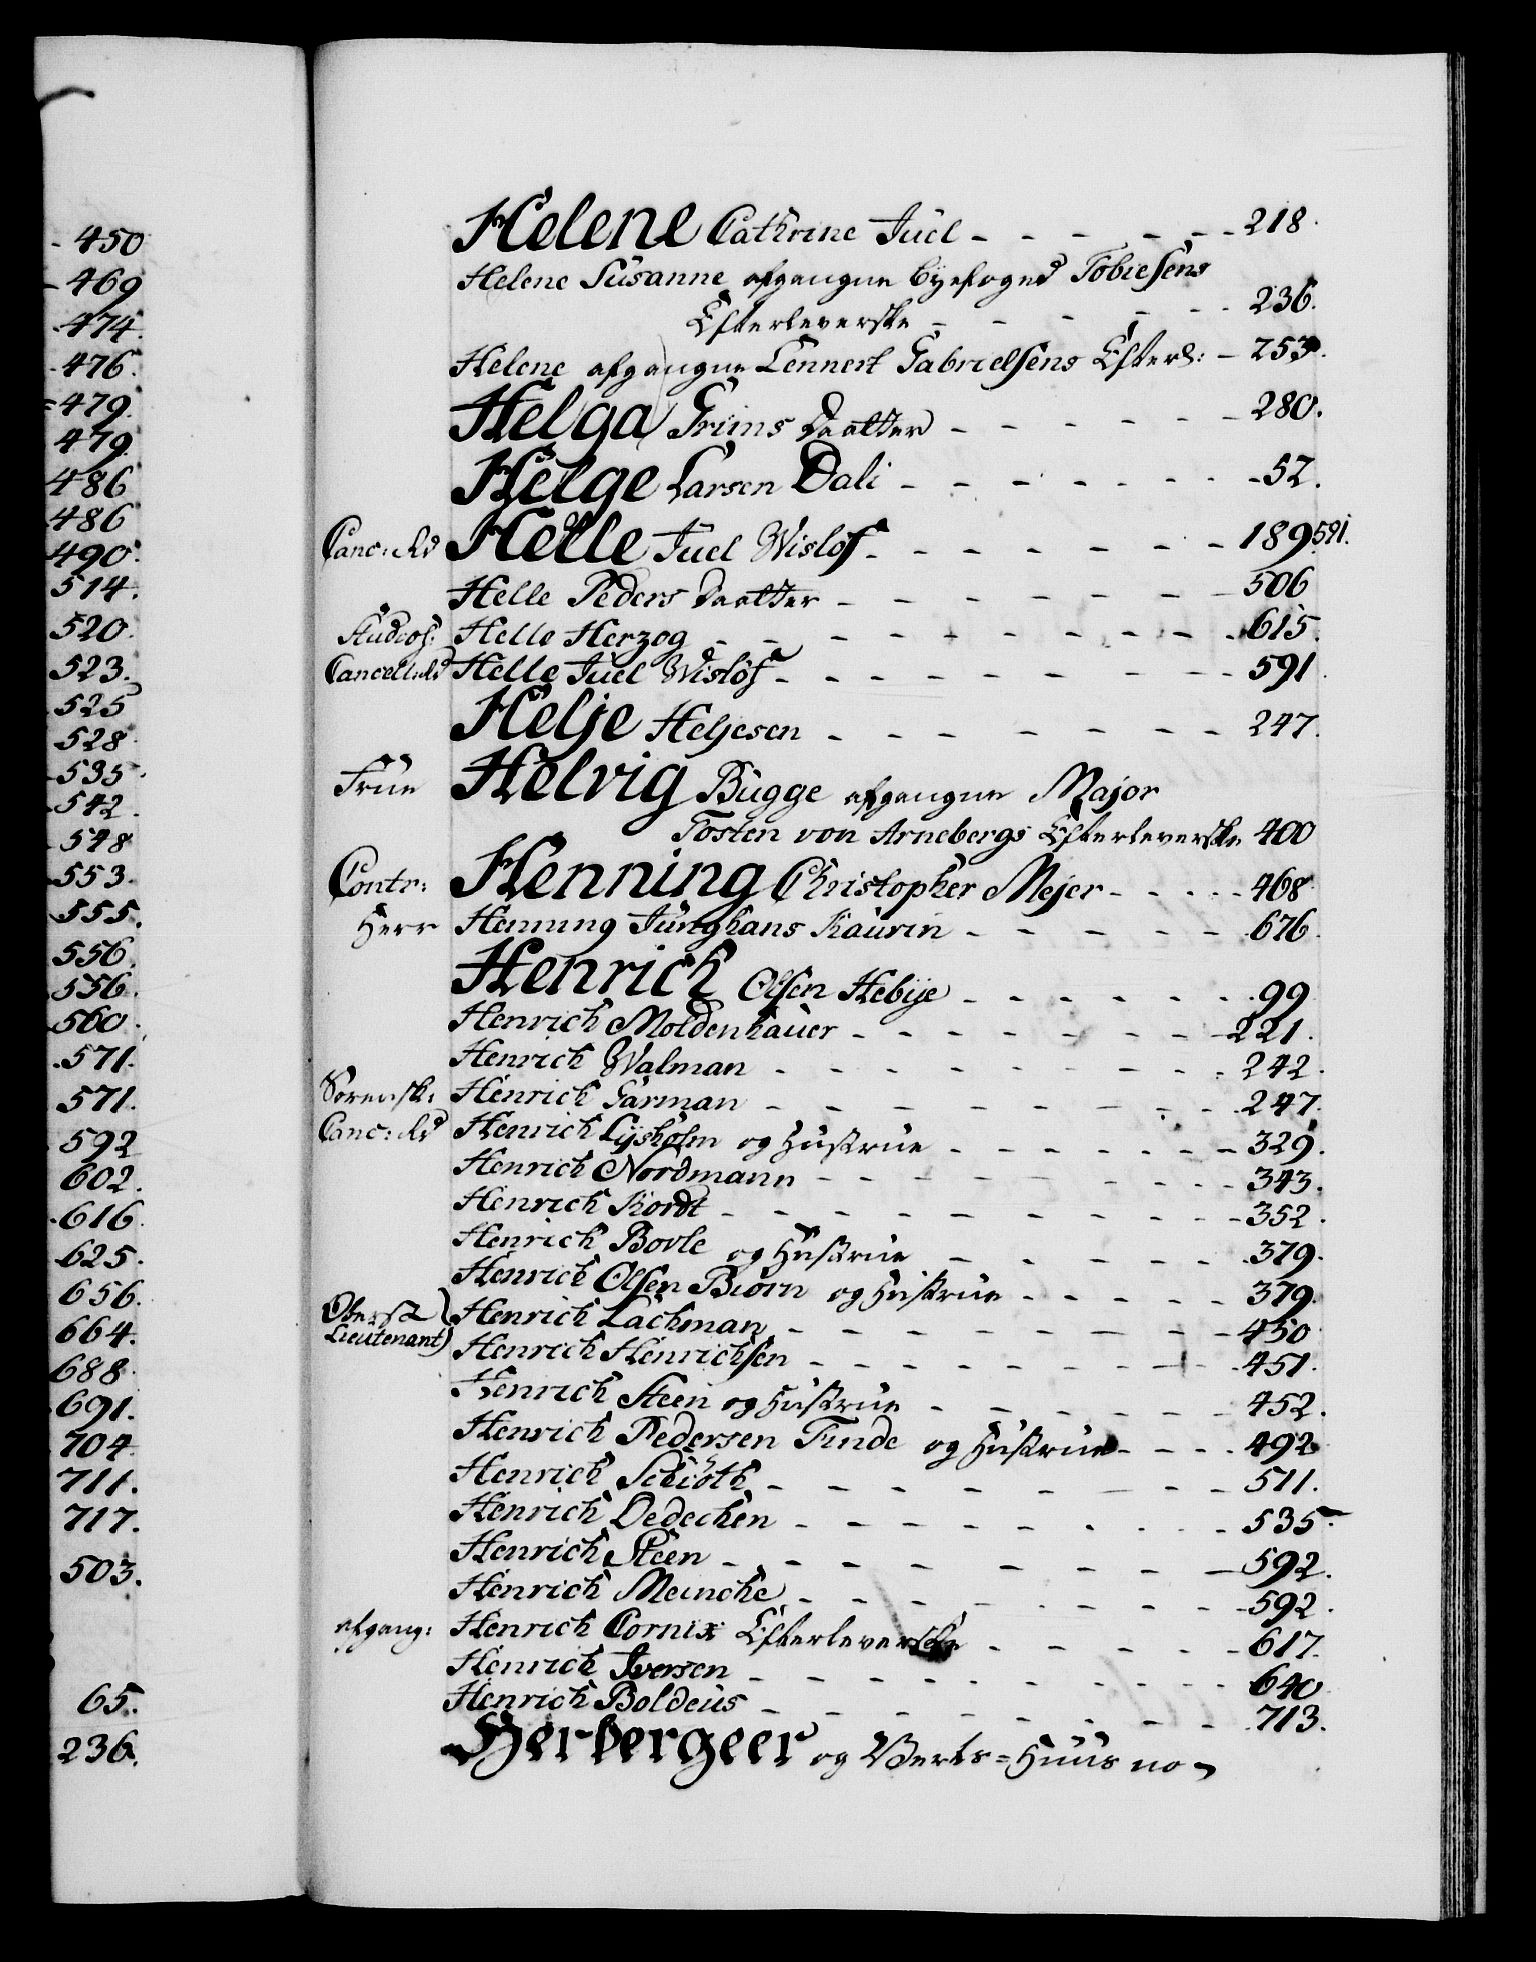 - 450
- 469
- 474.
- 476.
= 479.
479.
486
486
490.
514.
520.
523.
525
528.
- 535.
- 542.
548
553.
555.
556.
556.
560.
571.
571.
592
602.
616.
625.
656.
664.
688.
691.
704.
711.
717.
503.
65.
236.
Helene Cathrine Juel - - - - - - - 218.
Helene Susanne afgangne Byefoged Tobiesens
Efterleverske - - - - - - 236.
Helene afgangne Lennert Gabrielsens Efterl: - 253.
Helga Grims Daatter - - - - - - 280.
Helge Larsen Dali - - - - - - - - 52.
Canc: Rd Helle Juel Wisløf - - - - - - - 189. 591.
Helle Peders Daatter - - - - - - - 506
Studios: Helle Herzog - - - - - - - - - 615.
Cancell: Rd Helle Juel Wisløf - - - - - - - - - 591
Helje Heljesen - - - - - - - - 247.
Frue Helvig Bugge afgangne Major
Tosten von Arnebergs Efterleverske 400
Contr: Henning Christopher Mejer - - - - 468.
Herr Henning Junghans Kaurin - - - - - 676.
Henrich Olsen Hebye - - - - - - - 99.
Henrich Moldenhauer - - - - - - - - 221.
Henrich Walman - - - - - - - - - 242.
Sorensk: Henrich Garman - - - - - - - - - 247.
Canc: Rd Henrich Lysholm og Hustrue - - - - - - - 329.
Henrich Nordmann - - - - - - - - - 343.
Henrich Kordt - - - - - - - - - - 352.
Henrich Bovle og Hustrue - - - - - 379.
Henrich Olsen Biørn og Hustrue - - - - - 379.
Oberst Lieutenant) Henrich Lachman - - - - - - - - 450
Henrich Henrichsen - - - - - - - - - 451.
Henrich Steen og Hustrue - - - - - - 452.
Henrich Pedersen Finde og Hustrue - - - - 492.
Henrich Schiøth - - - - - - - - 511.
Henrich Dedechen - - - - - - - - - 535.
Henrich Steen - - - - - - - - 592.
Henrich Meincke - - - - - - - - - 592.
afgang: Henrich Cornix Efterleverske - - - - - 617.
Henrich Iversen - - - - - - - - - 640.
Henrich Boldeus - - - - - - - - - 713.
Herbergeer og Verts=Huus no-